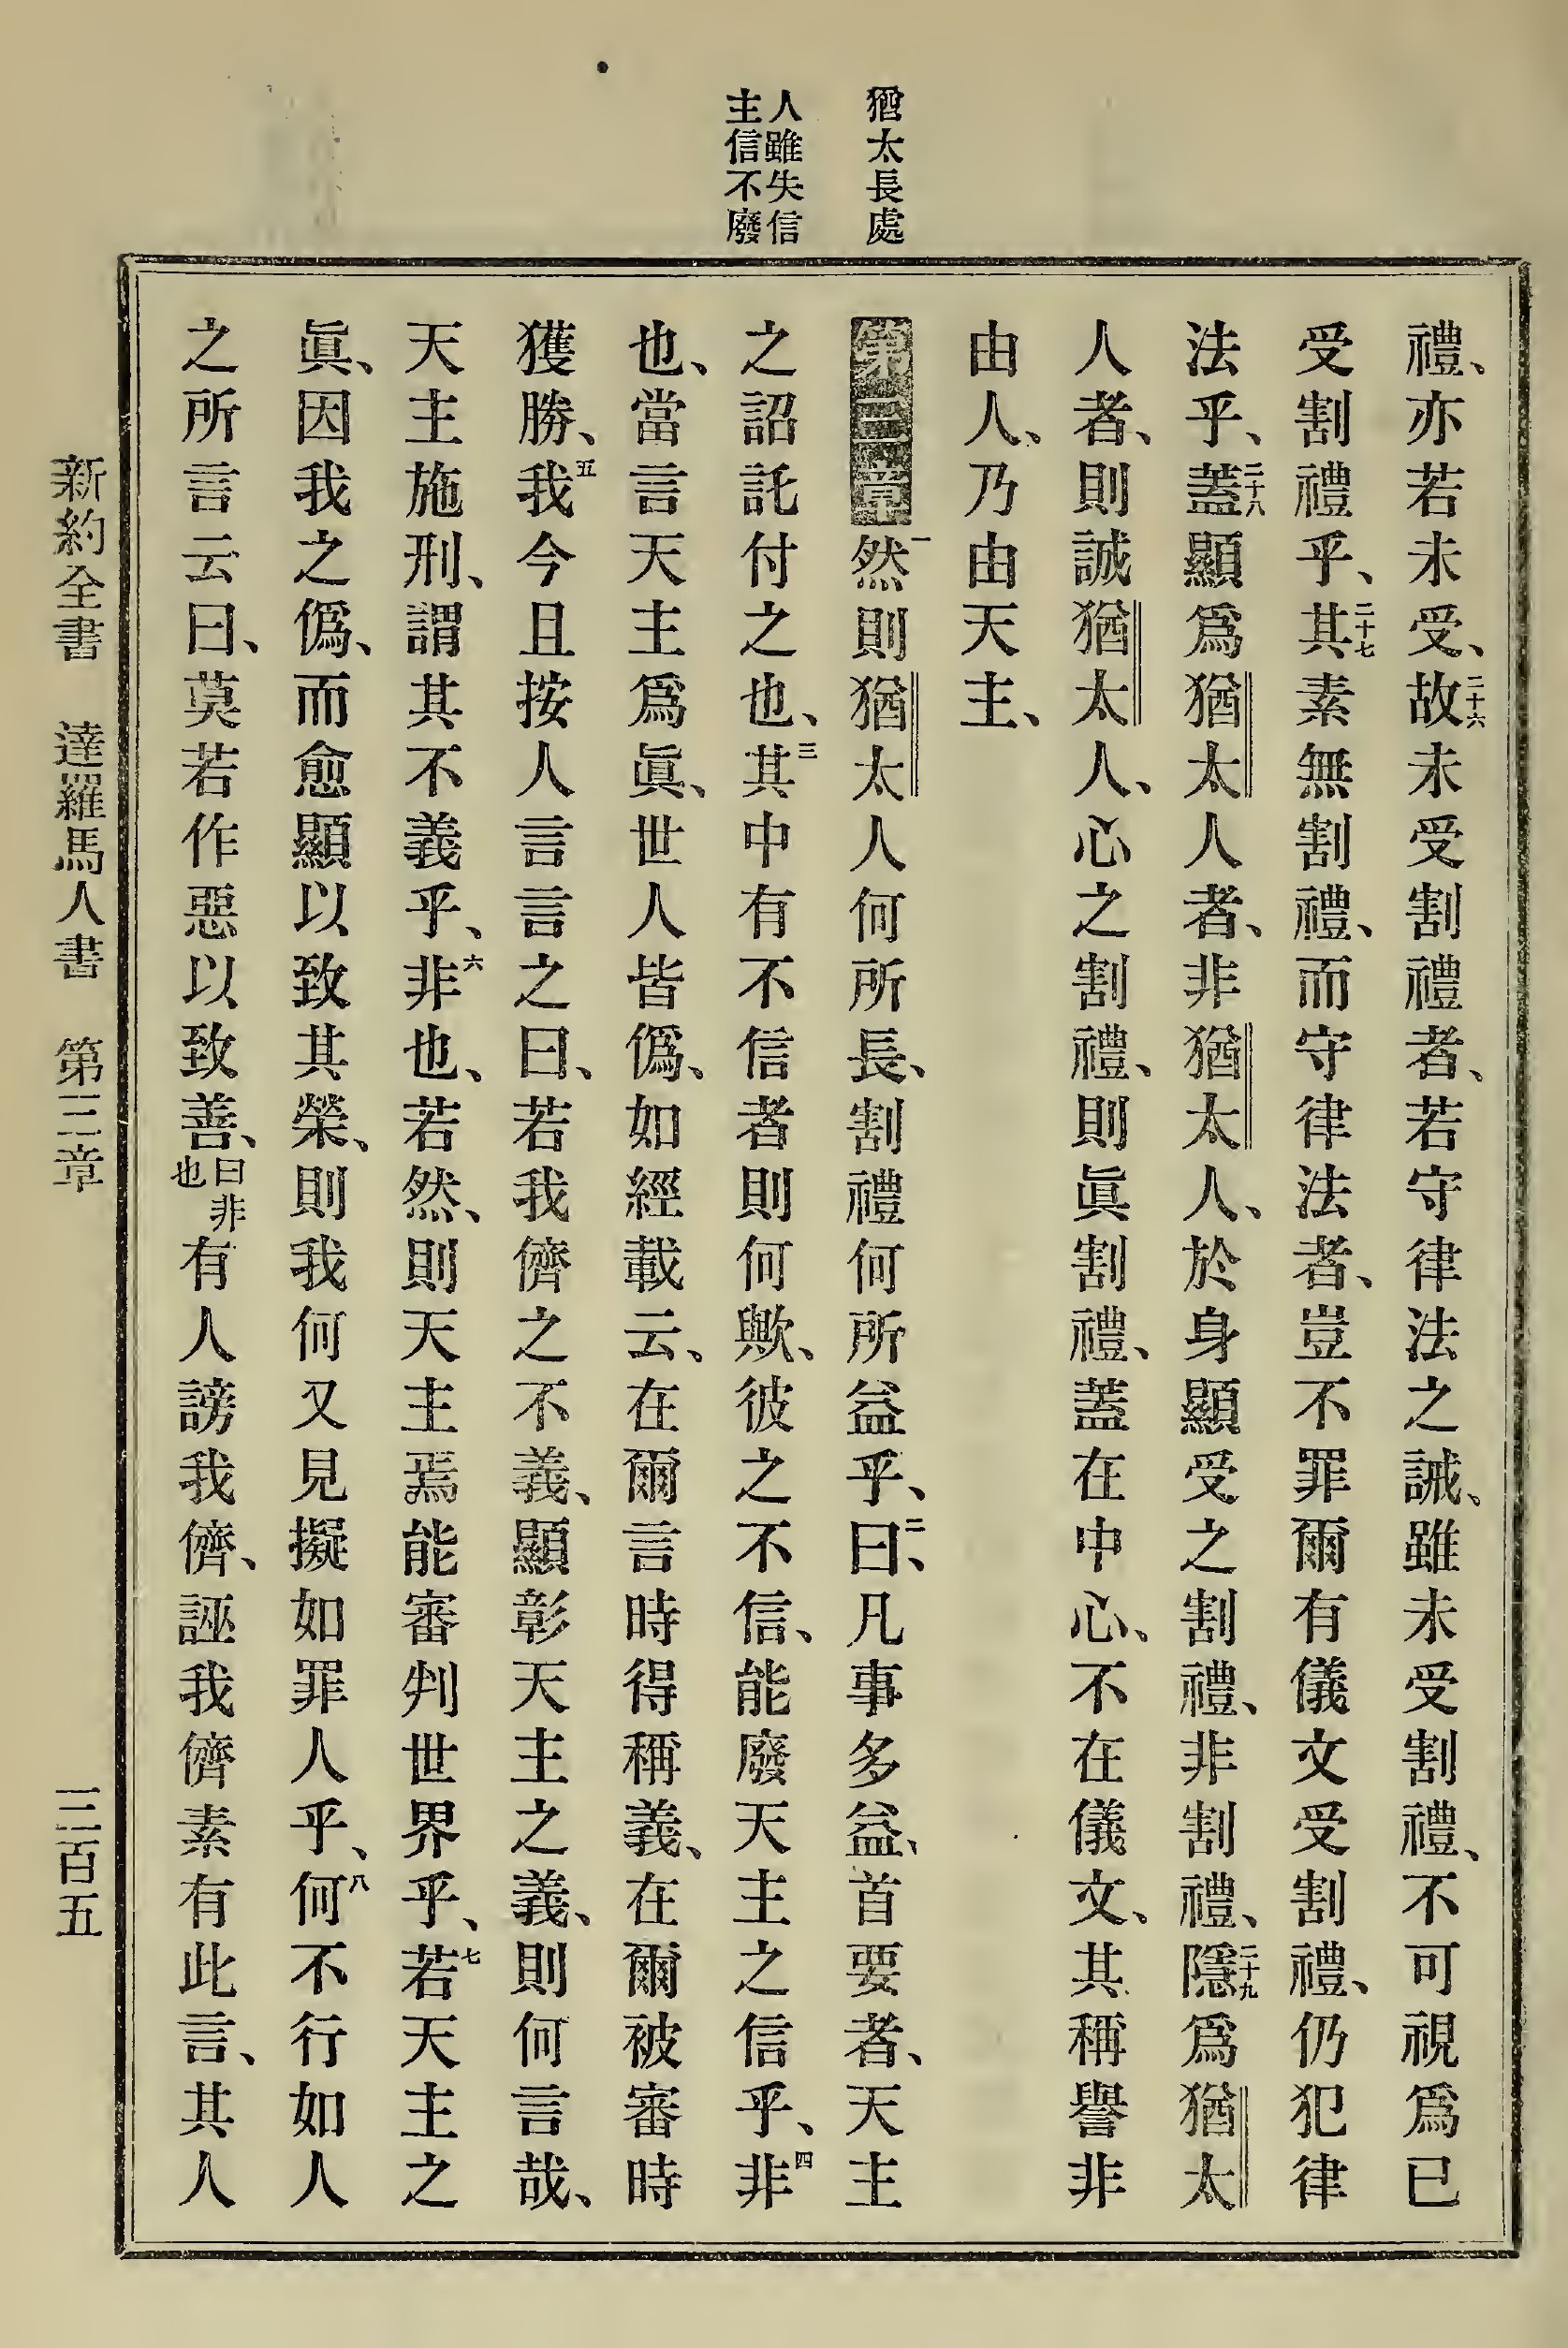 猶太長處
人雖失信
主信不廢
禮、亦若未受、二十六故未受割禮者、若守律法之誡、雖未受割禮、不可視爲已
受割禮乎、二十七其素無割禮、而守律法者、豈不罪爾有儀文受割禮、仍犯律
法乎、二十八蓋顯爲猶太人者、非猶太人、於身顯受之割禮、非割禮、二十九隱爲猶太
人者、則誠猶太人、心之割禮、則眞割禮、蓋在中心、不在儀文、其稱譽非
由人、乃由天主、
第三章一然則猶太人何所長、割禮何所益乎、二曰、凡事多益、首要者、天主
之詔託付之也、三其中有不信者則何歟、彼之不信、能廢天主之信乎、四非
也、當言天主爲眞、世人皆僞、如經載云、在爾言時得稱義、在爾被審時
獲勝、五我今且按人言言之曰、若我儕之不義、顯彰天主之義、則何言哉、
天主施刑、謂其不義乎、六非也、若然、則天主焉能審判世界乎、七若天主之
眞、因我之僞、而愈顯以致其榮、則我何又見擬如罪人乎、八何不行如人
之所言云曰、莫若作惡以致善、曰非也有人謗我儕、誣我儕素有此言、其人
新約全書 達羅馬人書 第三章 三百五